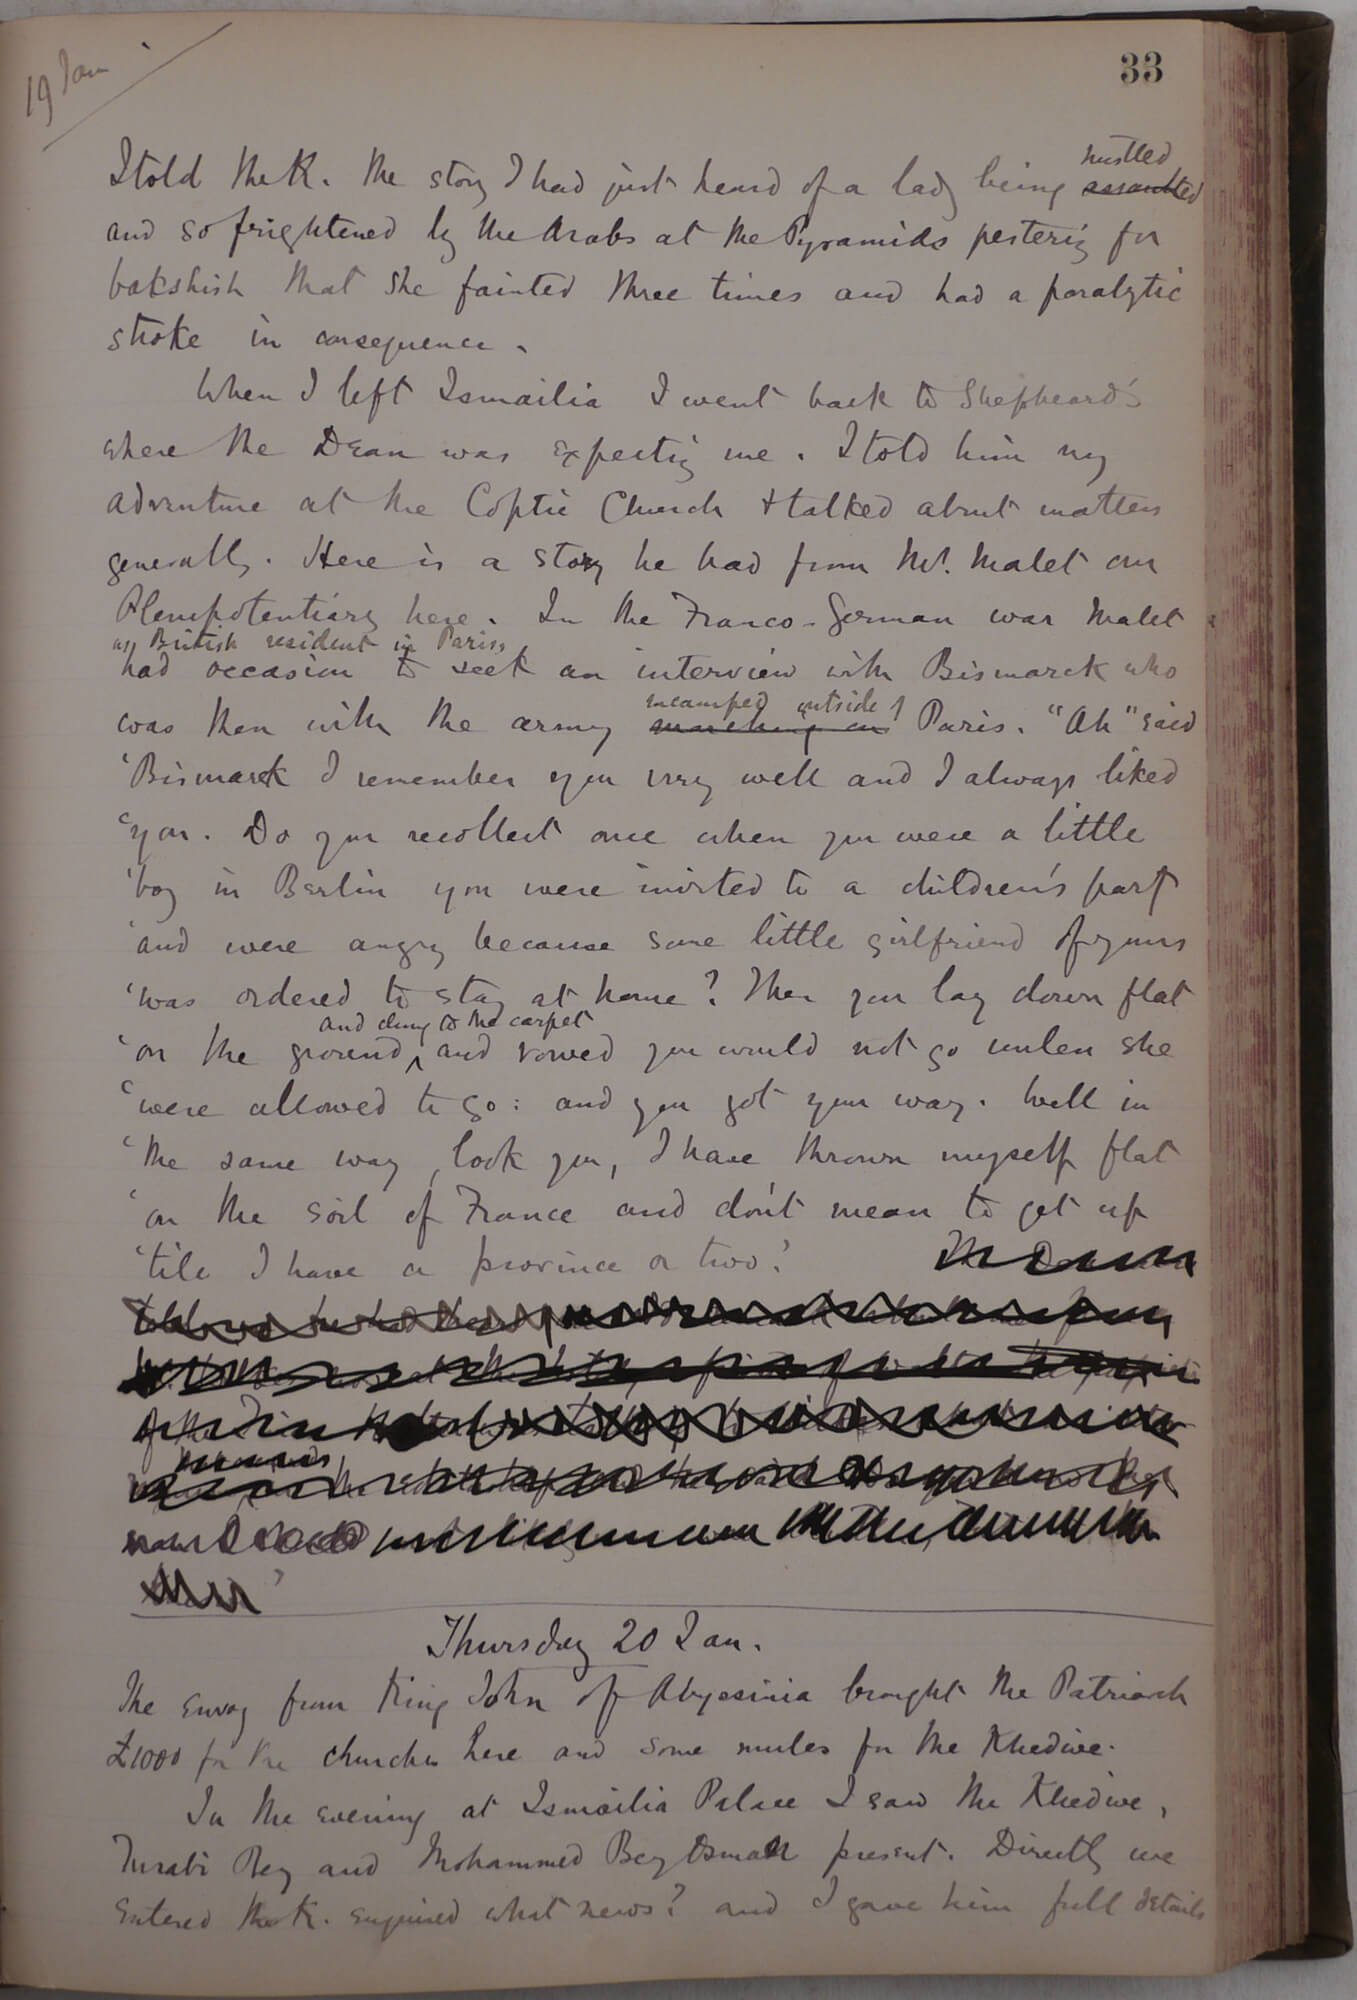 19 Jan
33
I told the K. the story I had just heard of a lady being assaulted hustled
and so frightened by the Arabs at the Pyramids pestering for
bakshish that she fainted three times and had a paralytic
stroke in consequence.
When I left Ismailia I went back to Shepheard's
where the Dean was expecting me. I told him my
adventure at the Coptic Church & talked about matters
generally. Here is a story he had from Mr. Malet our
Plenipotentiary here. In the Franco-German war Malet
as British resident in Paris,
had occasion to seek an interview with Bismarck who
encamped outside of
was then with the army marching on Paris. "Ah" said
'Bismarck I remember you very well and I always liked
'you. Do you recollect once when you were a little
'boy in Berlin you were invited to a children's party
'and were angry because some little girlfriend of yours
'was ordered to stay at home? Then you lay down flat
and clung to the carpet
'on the ground, and vowed you would not go unless she
'were allowed to go: and you got your way. Well in
'the same way, look you, I have thrown myself flat
'on the soil of France and don't mean to get up
'till I have a province or two.'
Thursday 20 Jan.
The envoy from King John of Abyssinia brought the Patriarch
£1000 for the churches here and some mules for the Khedive.
In the evening at Ismailia Palace I saw the Khedive,
Turabi Bey and Mohammed Bey Osman present. Directly we
entered the K. enquired what news? and I gave him full details